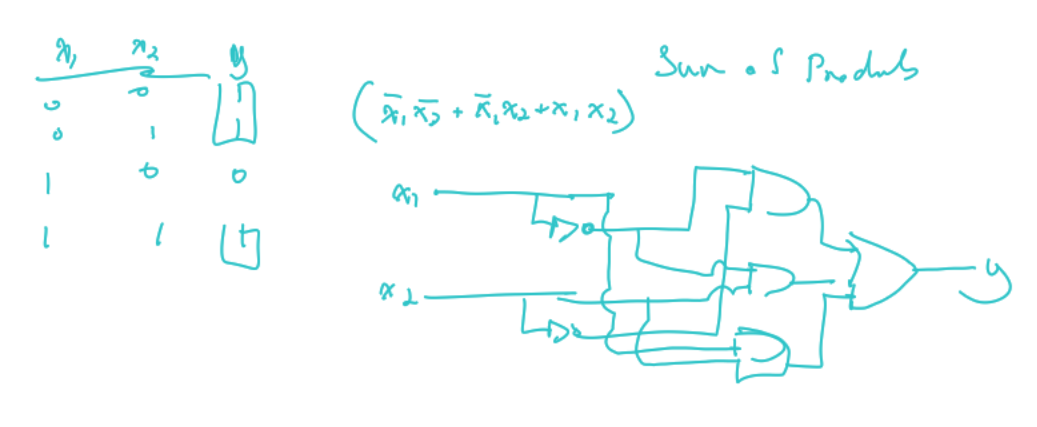 x₁ x₂ y
0 0 1
0 1 1
1 0 0
1 1 1
Sum of Products
(x̅₁x̅₂ + x̅₁x₂ + x₁x₂)
x₁
x₂
y